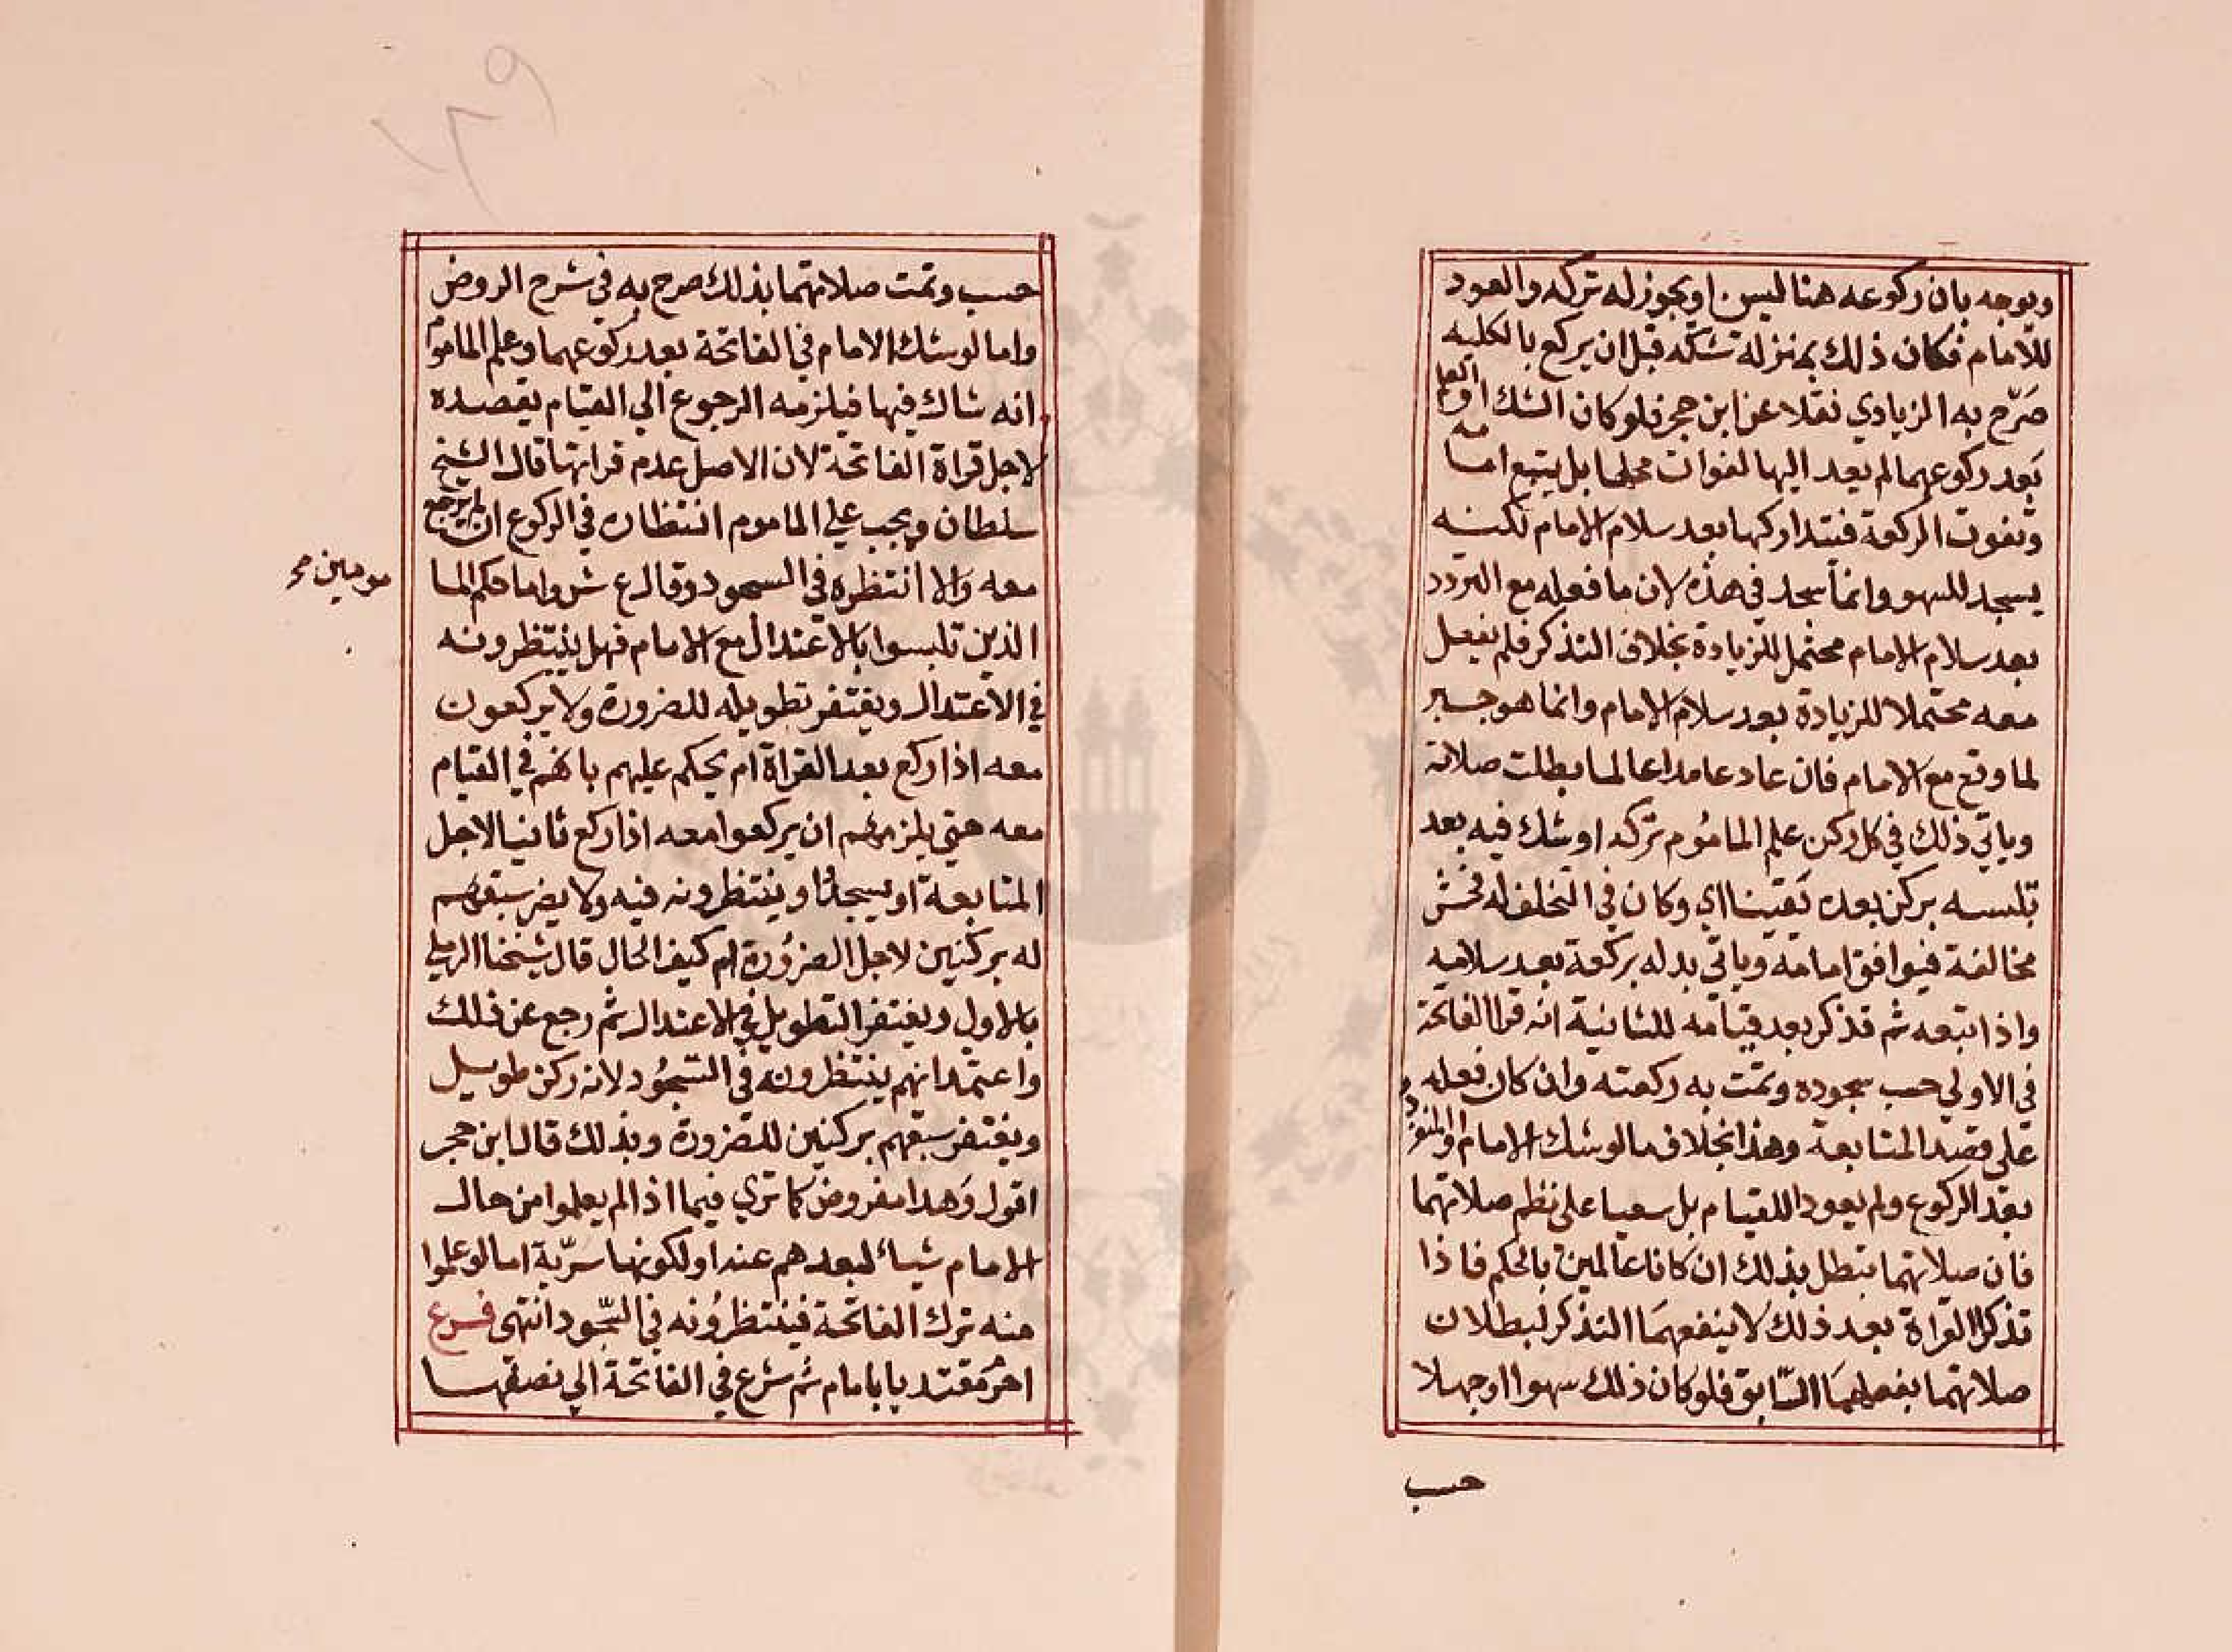 ويوجه بان ركوعه هنا ليس او يجوز له تركه والعود
للامام فكان ذلك بمنزلة شكه قبل ان يركع بالكليه
صرّح به الزيادي نقلا عن ابن حجر فلو كان الشك او العلم
بعد ركوعهما لم يعد اليها لفوات محلها بل يتبع امامه
وتفوت الركعة فيتداركها بعد سلام الامام لكنه
يسجد للسهو وانما سجد في هذه لان ما فعله مع التردد
بعد سلام الامام محتمل للزيادة بخلاف التذكر فلم يفعل
معه محتملا للزيادة بعد سلام الامام وانما هو جبر
لما وقع مع الامام فان عاد عامدا عالما بطلت صلاته
وياتي ذلك في كل ركن علم الماموم تركه او شك فيه بعد
تلبسه بركن بعده يقينا اي وكان في التخلف له فحش
مخالفة فيوافق امامه وياتي بدله بركعة بعد سلامه
واذا تبعه ثم تذكر بعد قيامه للثانية انه قرا الفاتحة
في الاولي حسب سجوده وتمت به ركعته وان كان فعله
علي قصد المتابعة وهذا بخلاف ما لو شك الامام او المنفرد
بعد الركوع ولم يعودا للقيام بل سعيا على نظم صلاتهما
فان صلاتهما تبطل بذلك ان كانا عالمين بالحكم فاذا
تذكرا القراة بعد ذلك لا ينفعهما التذكر لبطلان
صلاتهما بفعلهما السّابق فلو كان ذلك سهوا او جهلا
حسب
حسب وتمت صلاتهما بذلك صرح به في شرح الروض
واما لو شك الامام في الفاتحة بعد ركوعهما وعلم الماموم
انه شاك فيها فيلزمه الرجوع الي القيام بقصده
لاجل قراة الفاتحة لان الاصل عدم قراتها قال الشيخ
سلطان ويجب علي الماموم انتظاره في الركوع ان لم يرجع
معه والا انتظره في السجود وقال ع ش واما حكم الما
مومين مح
الذين تلبسوا بالاعتدال مع الامام فهل ينتظرونه
في الاعتدال ويغتفر تطويله للضرورة ولا يركعون
معه اذا ركع بعد القراة ام يحكم عليهم بانهم في القيام
معه حتي يلزمهم ان يركعوا معه اذا ركع ثانيا لاجل
المتابعة او يسجدوا وينتظرونه فيه ولا يضر سبقهم
له بركنين لاجل الضرورة ام كيف الحال قال شيخنا الرملي
بالاول ويغتفر التطويل في الاعتدال ثم رجع عن ذلك
واعتمد انهم ينتظرونه في السجود لانه ركن طويل
ويغتفر سبقهم بركنين للضرورة وبذلك قال ابن حجر
اقول وهذا مفروض كما تري فيما اذا لم يعلموا من حال
الامام شيا لبعدهم عند او لكونها سرّية اما لو علموا
منه ترك الفاتحة فينتظرونه في السّجود انتهى فرع
احرم مقتديا بامام ثم شرع في الفاتحة الي نصفها